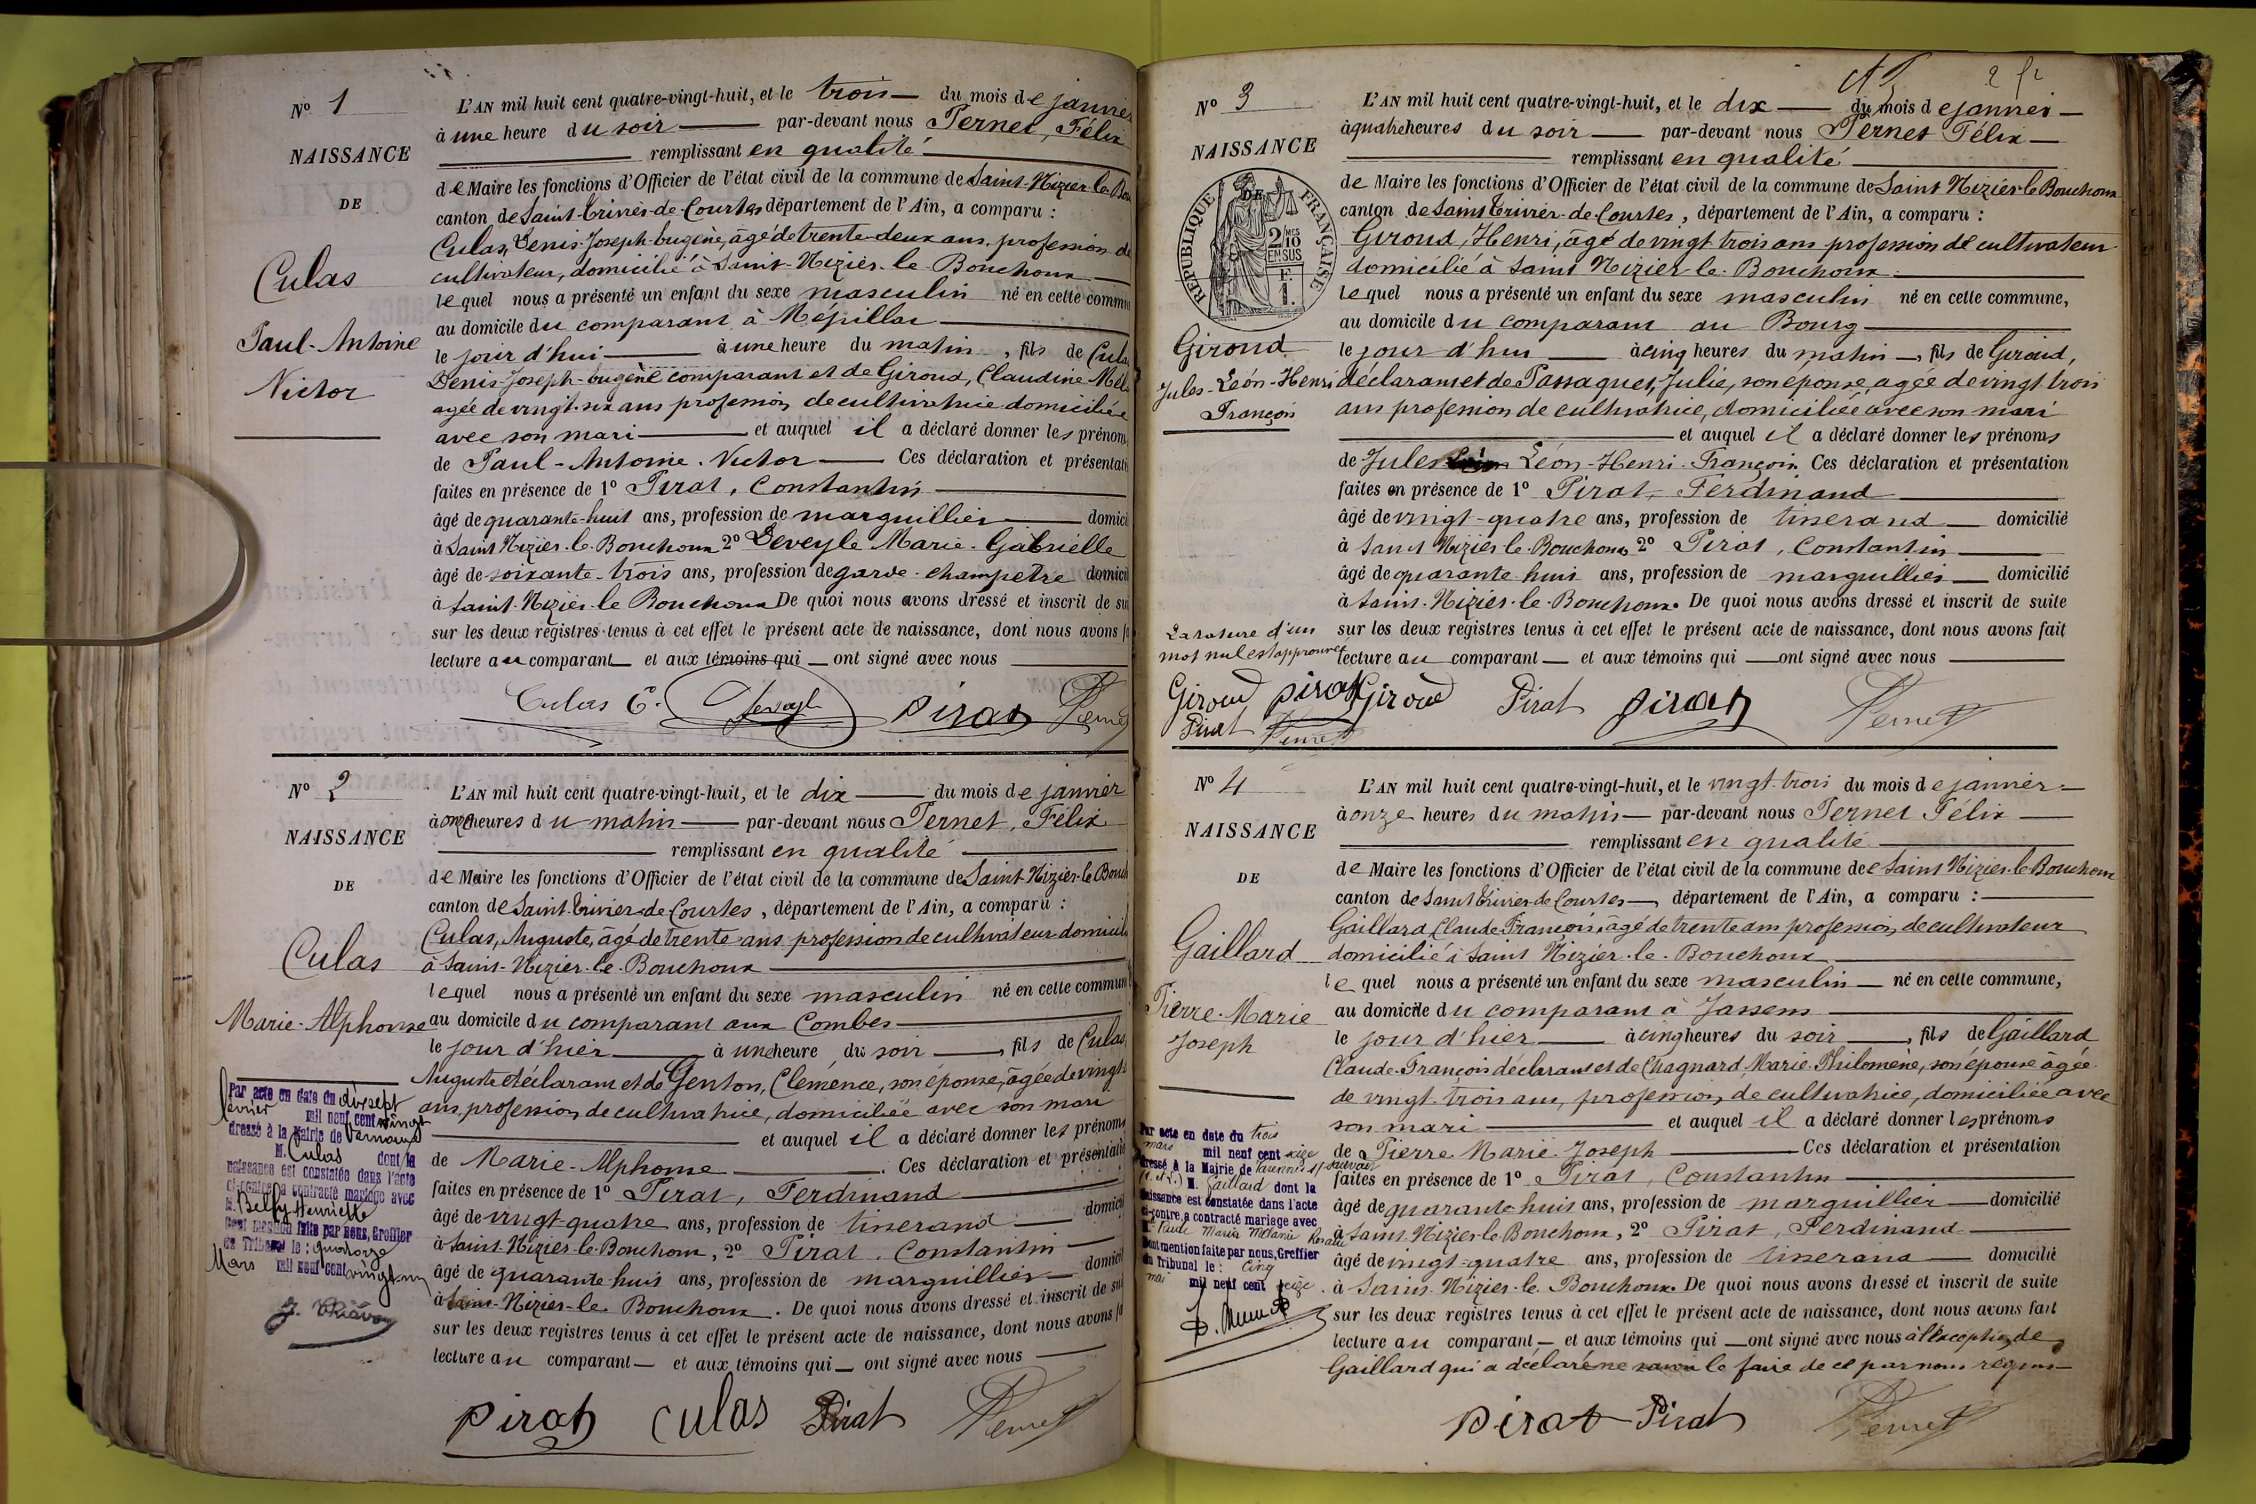 N° 1
NAISSANCE
DE
Culas
Paul-Antoine
Victor
L'AN mil huit cent quatre-vingt-huit, et le trois du mois de janvier
à une heure du soir par-devant nous Pernet, Félix
remplissant en qualité
de Maire les fonctions d'Officier de l'état civil de la commune de Saint-Nizier-le-Bou
canton de Saint-Trivier-de-Courtes département de l'Ain, a comparu :
Culas, Denis-Joseph-Eugène, âgé de trente-deux ans, profession de
cultivateur, domicilié à Saint-Nizier-le-Bouchoux
lequel nous a présenté un enfant du sexe masculin né en cette commu
au domicile du comparant à Mépillat
le jour d'hui à une heure du matin, fils de Cula
Denis-Joseph-Eugène comparant et de Giroud, Claudine
agée de vingt-six ans profession de cultivatrice domiciliée
avec son mari et auquel il a déclaré donner les prénoms
de Paul-Antoine-Victor Ces déclaration et présentati
faites en présence de 1° Pirat, Constantin
âgé de quarante-huit ans, profession de marguillier domici
à Saint Nizier-le-Bouchoux 2° Deveyle Marie-Gabrielle
âgé de soixante-trois ans, profession de garde-champetre domici
à Saint-Nizier-le Bouchoux De quoi nous avons dressé et inscrit de su
sur les deux registres tenus à cet effet le présent acte de naissance, dont nous avons fa
lecture au comparant et aux témoins qui ont signé avec nous
Culas E. Deveyle Pirat Pernet
N° 2
NAISSANCE
DE
Culas
Marie-Alphonse
L'AN mil huit cent quatre-vingt-huit, et le dix du mois de janvier
à onze heures du matin par-devant nous Pernet, Félix
remplissant en qualité
de Maire les fonctions d'Officier de l'état civil de la commune de Saint-Nizier-le-Bouch
canton de Saint-Trivier-de-Courtes, département de l'Ain, a comparu :
Culas, Auguste, âgé de trente ans profession de cultivateur domicil
à Saint-Nizier-le-Bouchoux
lequel nous a présenté un enfant du sexe masculin né en cette commun
au domicile du comparant aux Combes
le jour d'hier à une heure du soir, fils de Culas,
Auguste déclarant et de Genton, Clémence, son épouse, âgée de vingt
ans, profession de cultivatrice, domiciliée avec son mari
et auquel il a déclaré donner les prénoms
de Marie-Alphonse. Ces déclaration et présentatio
faites en présence de 1° Pirat, Ferdinand
âgé de vingt-quatre ans, profession de tisserand domici
à Saint-Nizier-le-Bouchoux, 2° Pirat, Constantin
âgé de quarante-huit ans, profession de marguillier domici
à Saint-Nizier-le-Bouchoux. De quoi nous avons dressé et inscrit de sui
sur les deux registres tenus à cet effet le présent acte de naissance, dont nous avons fa
lecture au comparant et aux témoins qui ont signé avec nous
Pirat Culas Pirat Pernet
Par acte en date du dix sept
février mil neuf cent vingt
dressé à la Mairie de Vernoux
M. Culas dont la
naissance est constatée dans l'acte
ci-contre a contracté mariage avec
M. Belfy Henriette
Dont mention faite par nous, Greffier
du Tribunal le : quatorze
Mars mil neuf cent vingt-un
2
N° 3
NAISSANCE
DE
RÉPUBLIQUE FRANÇAISE
2 MES
10
EN SUS
F.
1.
Giroud
Jules-Léon-Henri
François
L'AN mil huit cent quatre-vingt-huit, et le dix du mois de janvier
à quatre heures du soir par-devant nous Pernet Félix
remplissant en qualité
de Maire les fonctions d'Officier de l'état civil de la commune de Saint Nizier-le Bouchoux
canton de Saint Trivier-de-Courtes, département de l'Ain, a comparu :
Giroud, Henri, âgé de vingt trois ans profession de cultivateur
domicilié à Saint Nizier-le-Bouchoux.
lequel nous a présenté un enfant du sexe masculin né en cette commune,
au domicile du comparant au Bourg
le jour d'hui à cinq heures du matin, fils de Giroud,
déclarant et de Passaquet, Julie, son épouse, agée de vingt trois
ans profession de cultivatrice, domiciliée avec son mari
et auquel il a déclaré donner les prénoms
de Jules Léon-Henri-François. Ces déclaration et présentation
faites en présence de 1° Pirat, Ferdinand
âgé de vingt-quatre ans, profession de tisserand domicilié
à Saint Nizier le-Bouchoux 2° Pirat, Constantin
âgé de quarante huit ans, profession de marguillier domicilié
à Saint-Nizier-le-Bouchoux. De quoi nous avons dressé et inscrit de suite
sur les deux registres tenus à cet effet le présent acte de naissance, dont nous avons fait
lecture au comparant et aux témoins qui ont signé avec nous
La rature d'un
mot nul est approuvée
Giroud Pirat Giroud Pirat Pirat Pernet
Pirat Pernet
N° 4
NAISSANCE
DE
Gaillard
Pierre-Marie
Joseph
L'AN mil huit cent quatre-vingt-huit, et le vingt-trois du mois de janvier
à onze heures du matin par-devant nous Pernet Félix
remplissant en qualité
de Maire les fonctions d'Officier de l'état civil de la commune de Saint Nizier-le-Bouchoux
canton de Saint Trivier-de-Courtes, département de l'Ain, a comparu :
Gaillard, Claude-François, âgé de trente ans profession de cultivateur
domicilié à Saint Nizier-le-Bouchoux
lequel nous a présenté un enfant du sexe masculin né en cette commune,
au domicile du comparant à Jassens
le jour d'hier à cinq heures du soir, fils de Gaillard
Claude-François déclarant et de Chagnard Marie-Philomène, son épouse âgée
de vingt-trois ans, profession de cultivatrice, domiciliée avec
son mari et auquel il a déclaré donner les prénoms
de Pierre Marie Joseph Ces déclaration et présentation
faites en présence de 1° Pirat, Constantin
âgé de quarante huit ans, profession de marguillier domicilié
à Saint Nizier-le-Bouchoux, 2° Pirat, Ferdinand
âgé de vingt-quatre ans, profession de tisserand domicilié
à Saint-Nizier-le-Bouchoux. De quoi nous avons dressé et inscrit de suite
sur les deux registres tenus à cet effet le présent acte de naissance, dont nous avons fait
lecture au comparant et aux témoins qui ont signé avec nous à l'exception de
Gaillard qui a déclaré ne savoir le faire de ce par nous requis
Pirat Pirat Pernet
Par acte en date du trois
mars mil neuf cent seize
dressé à la Mairie de Varennes St Sauveur
(S. et L.) M. Gaillard dont la
naissance est constatée dans l'acte
ci-contre a contracté mariage avec
M. Maria Mélanie
Dont mention faite par nous, Greffier
du Tribunal le : cinq
mai mil neuf cent seize.